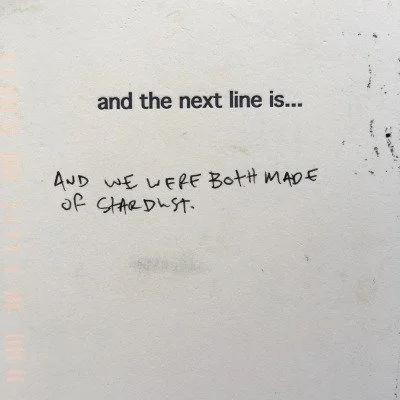 and the next line is...
AND WE WERE BOTH MADE
OF STARDUST.